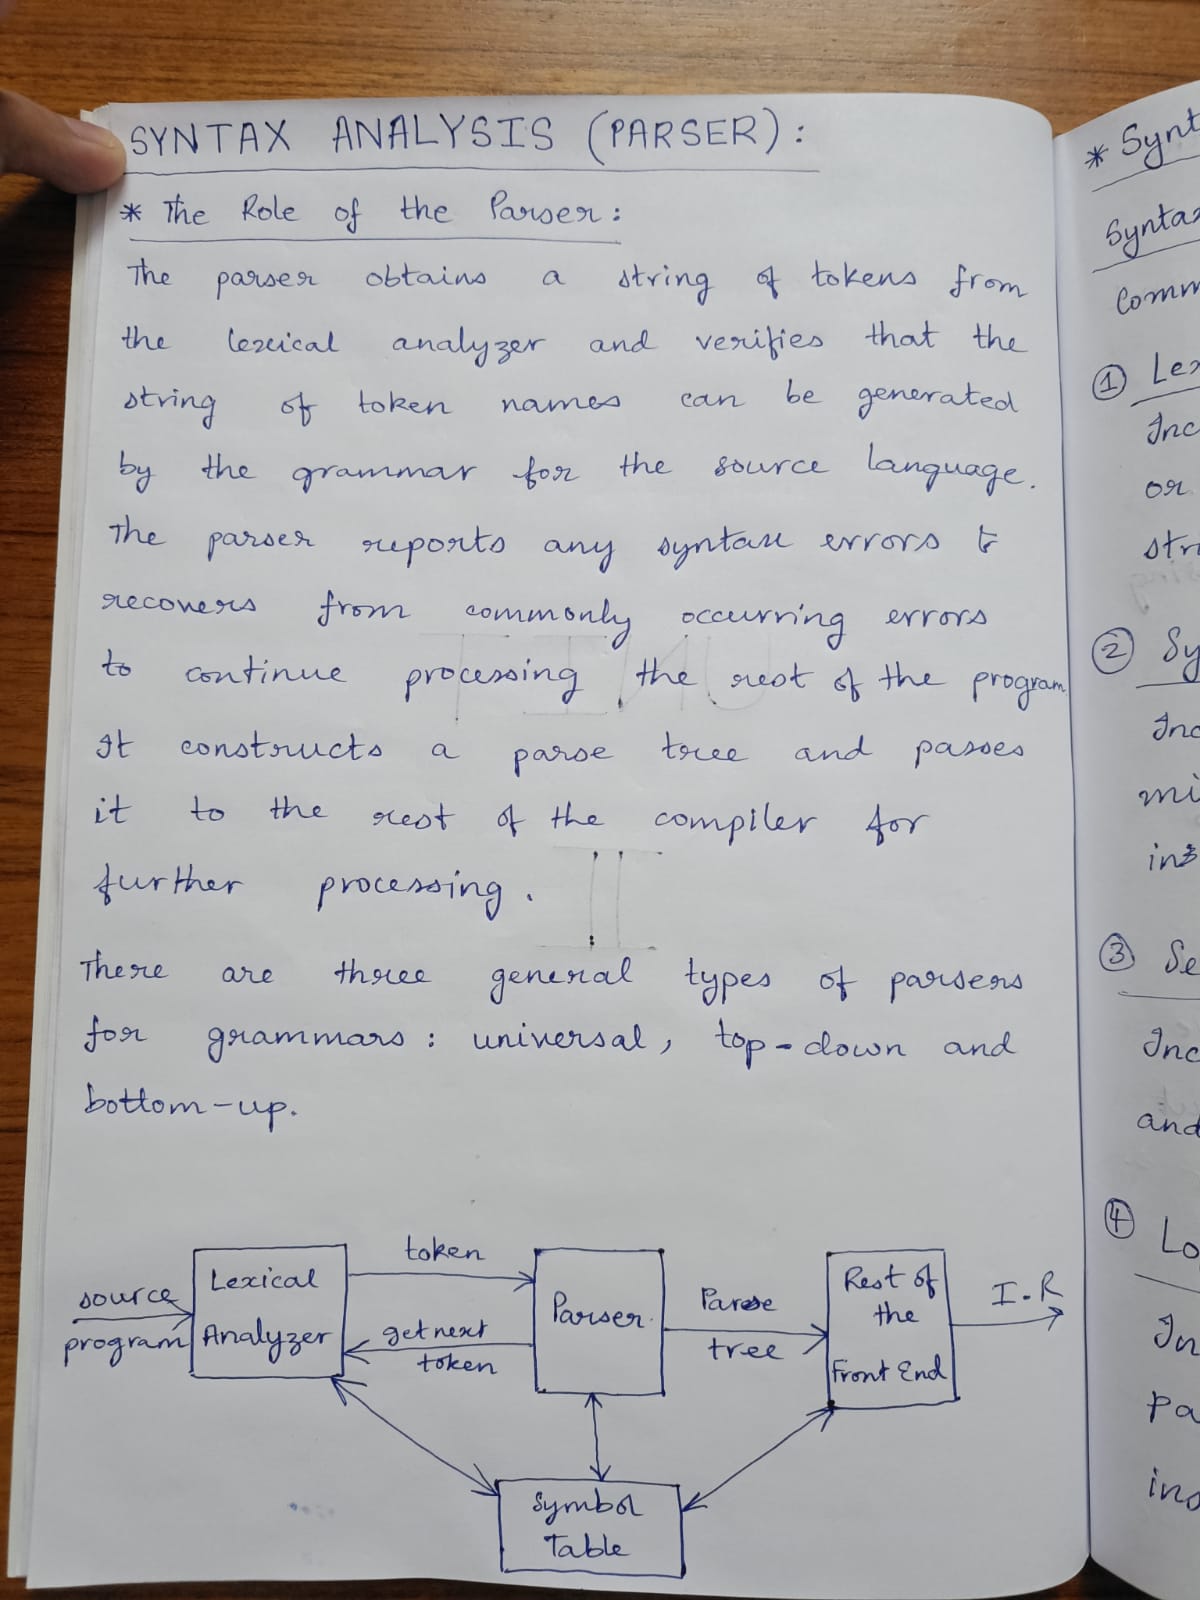 SYNTAX ANALYSIS (PARSER) :
* The Role of the Parser :
The parser obtains a string of tokens from
the lexical analyzer and verifies that the
string of token names can be generated
by the grammar for the source language.
The parser reports any syntax errors &
recovers from commonly occurring errors
to continue processing the rest of the program
It constructs a parse tree and passes
it to the rest of the compiler for
further processing.
There are three general types of parsers
for grammars : universal, top-down and
bottom-up.
source
program
Lexical
Analyzer
token
get next
token
Parser
Parse
tree
Rest of
the
Front End
I.R
Symbol
Table
* Synt
Syntax
Comm
① Lex
Inc
or
str
② Sy
Inc
mi
③ Se
Inc
and
④ Lo
In
Pa
ins